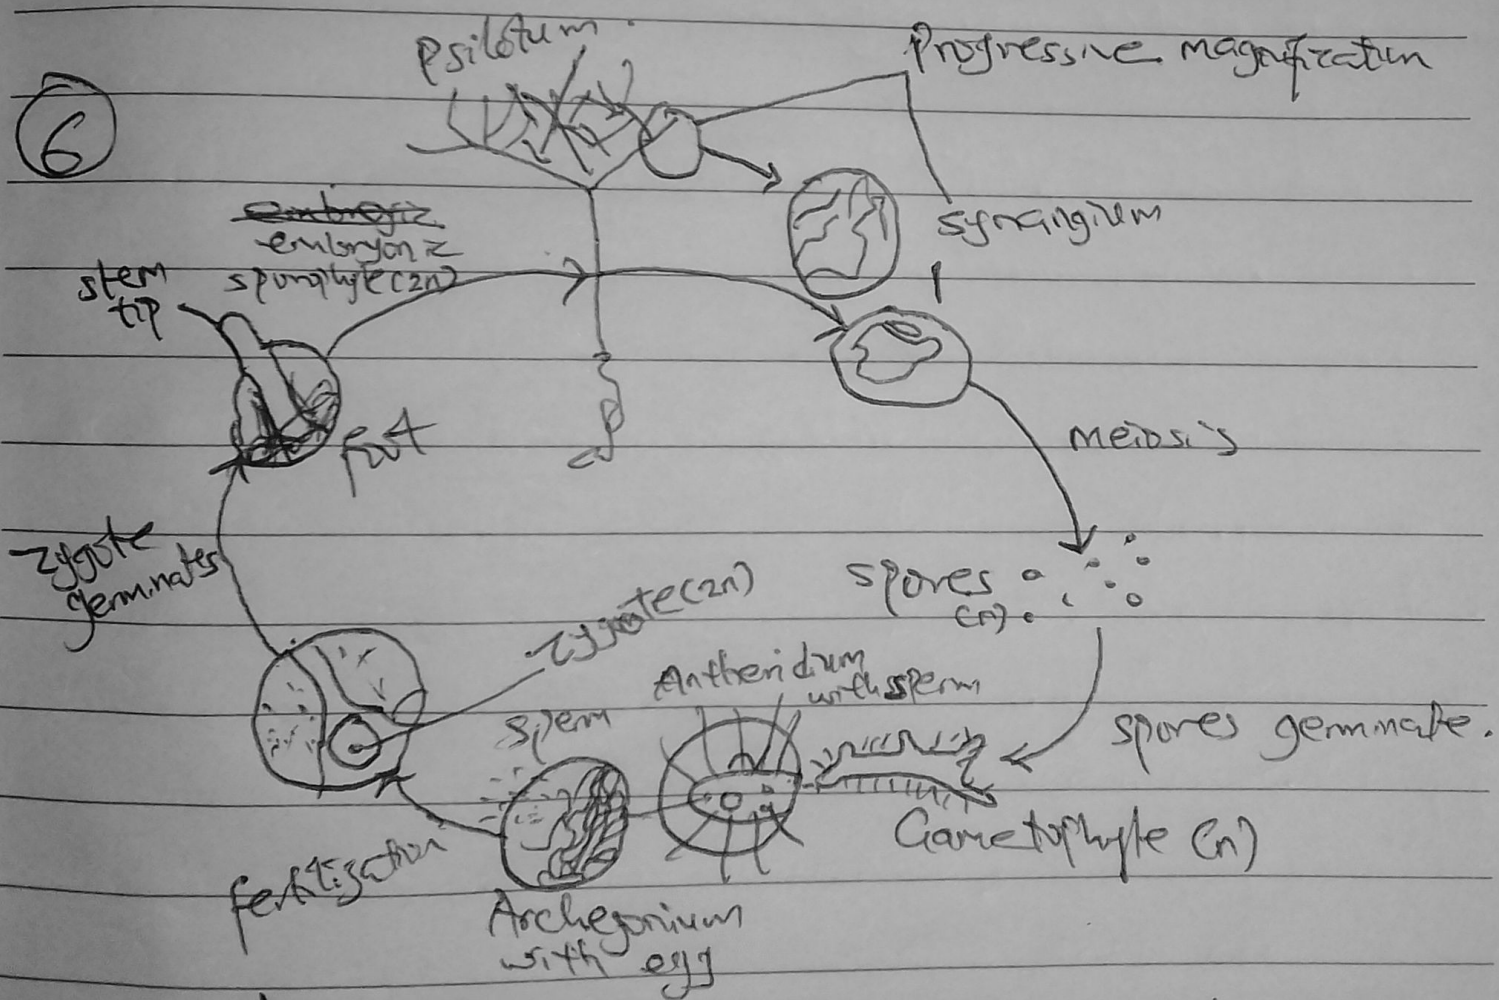 Psilotum.
Progressive magnification
6
synangium
embryonic
sporophyte (2n)
stem
tip
foot
meiosis
zygote
germinates
spores
(n)
zygote (2n)
Antheridium
with sperm
sperm
spores germinate.
Gametophyte (n)
fertilization
Archegonium
with egg